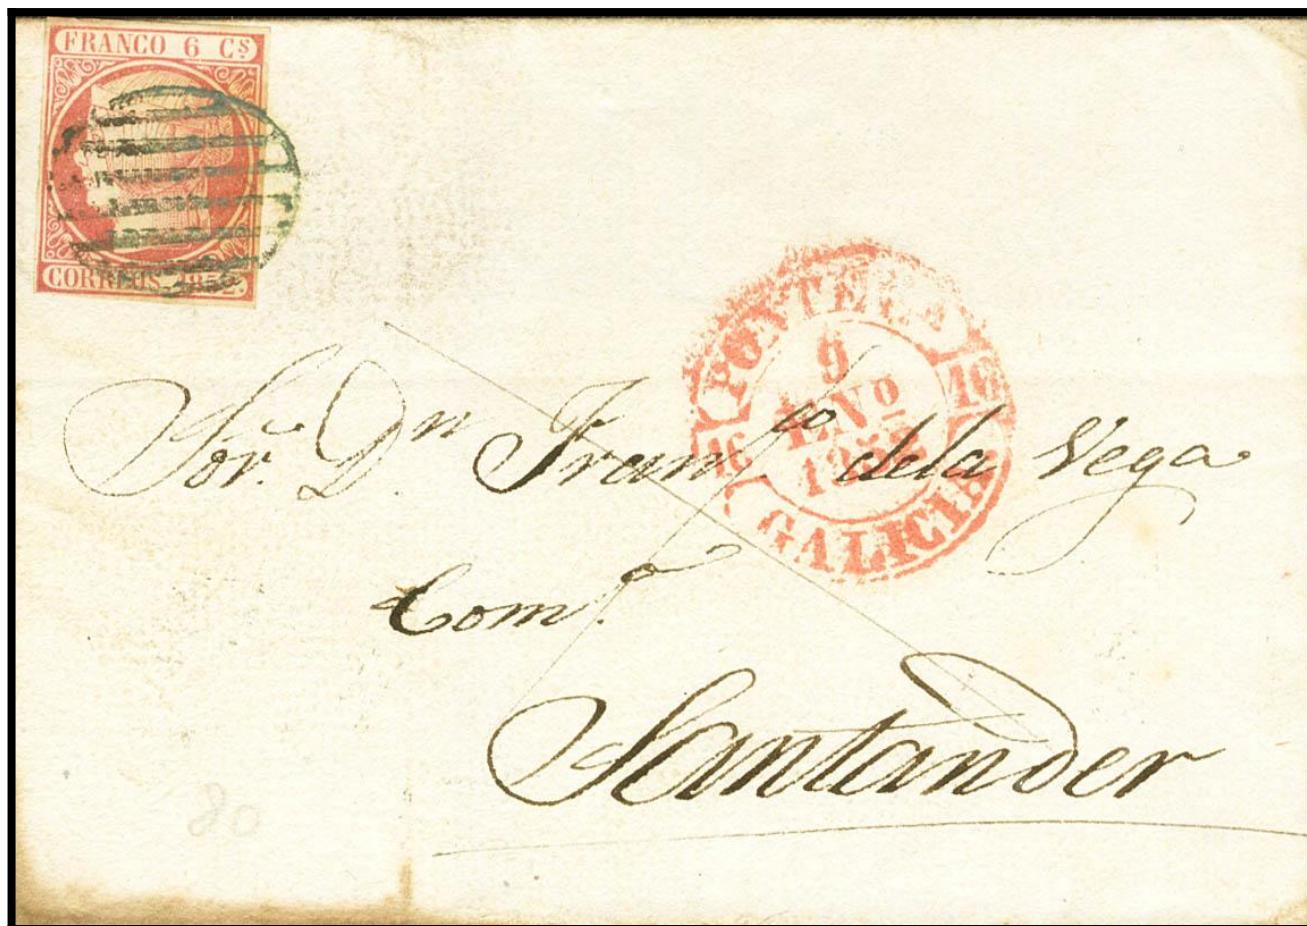 FRANCO 6 Cs.
CORREOS 1852.
9
ENº
16 16
GALICIA
Sor. Dn. Franco dela Vega
Santander
80